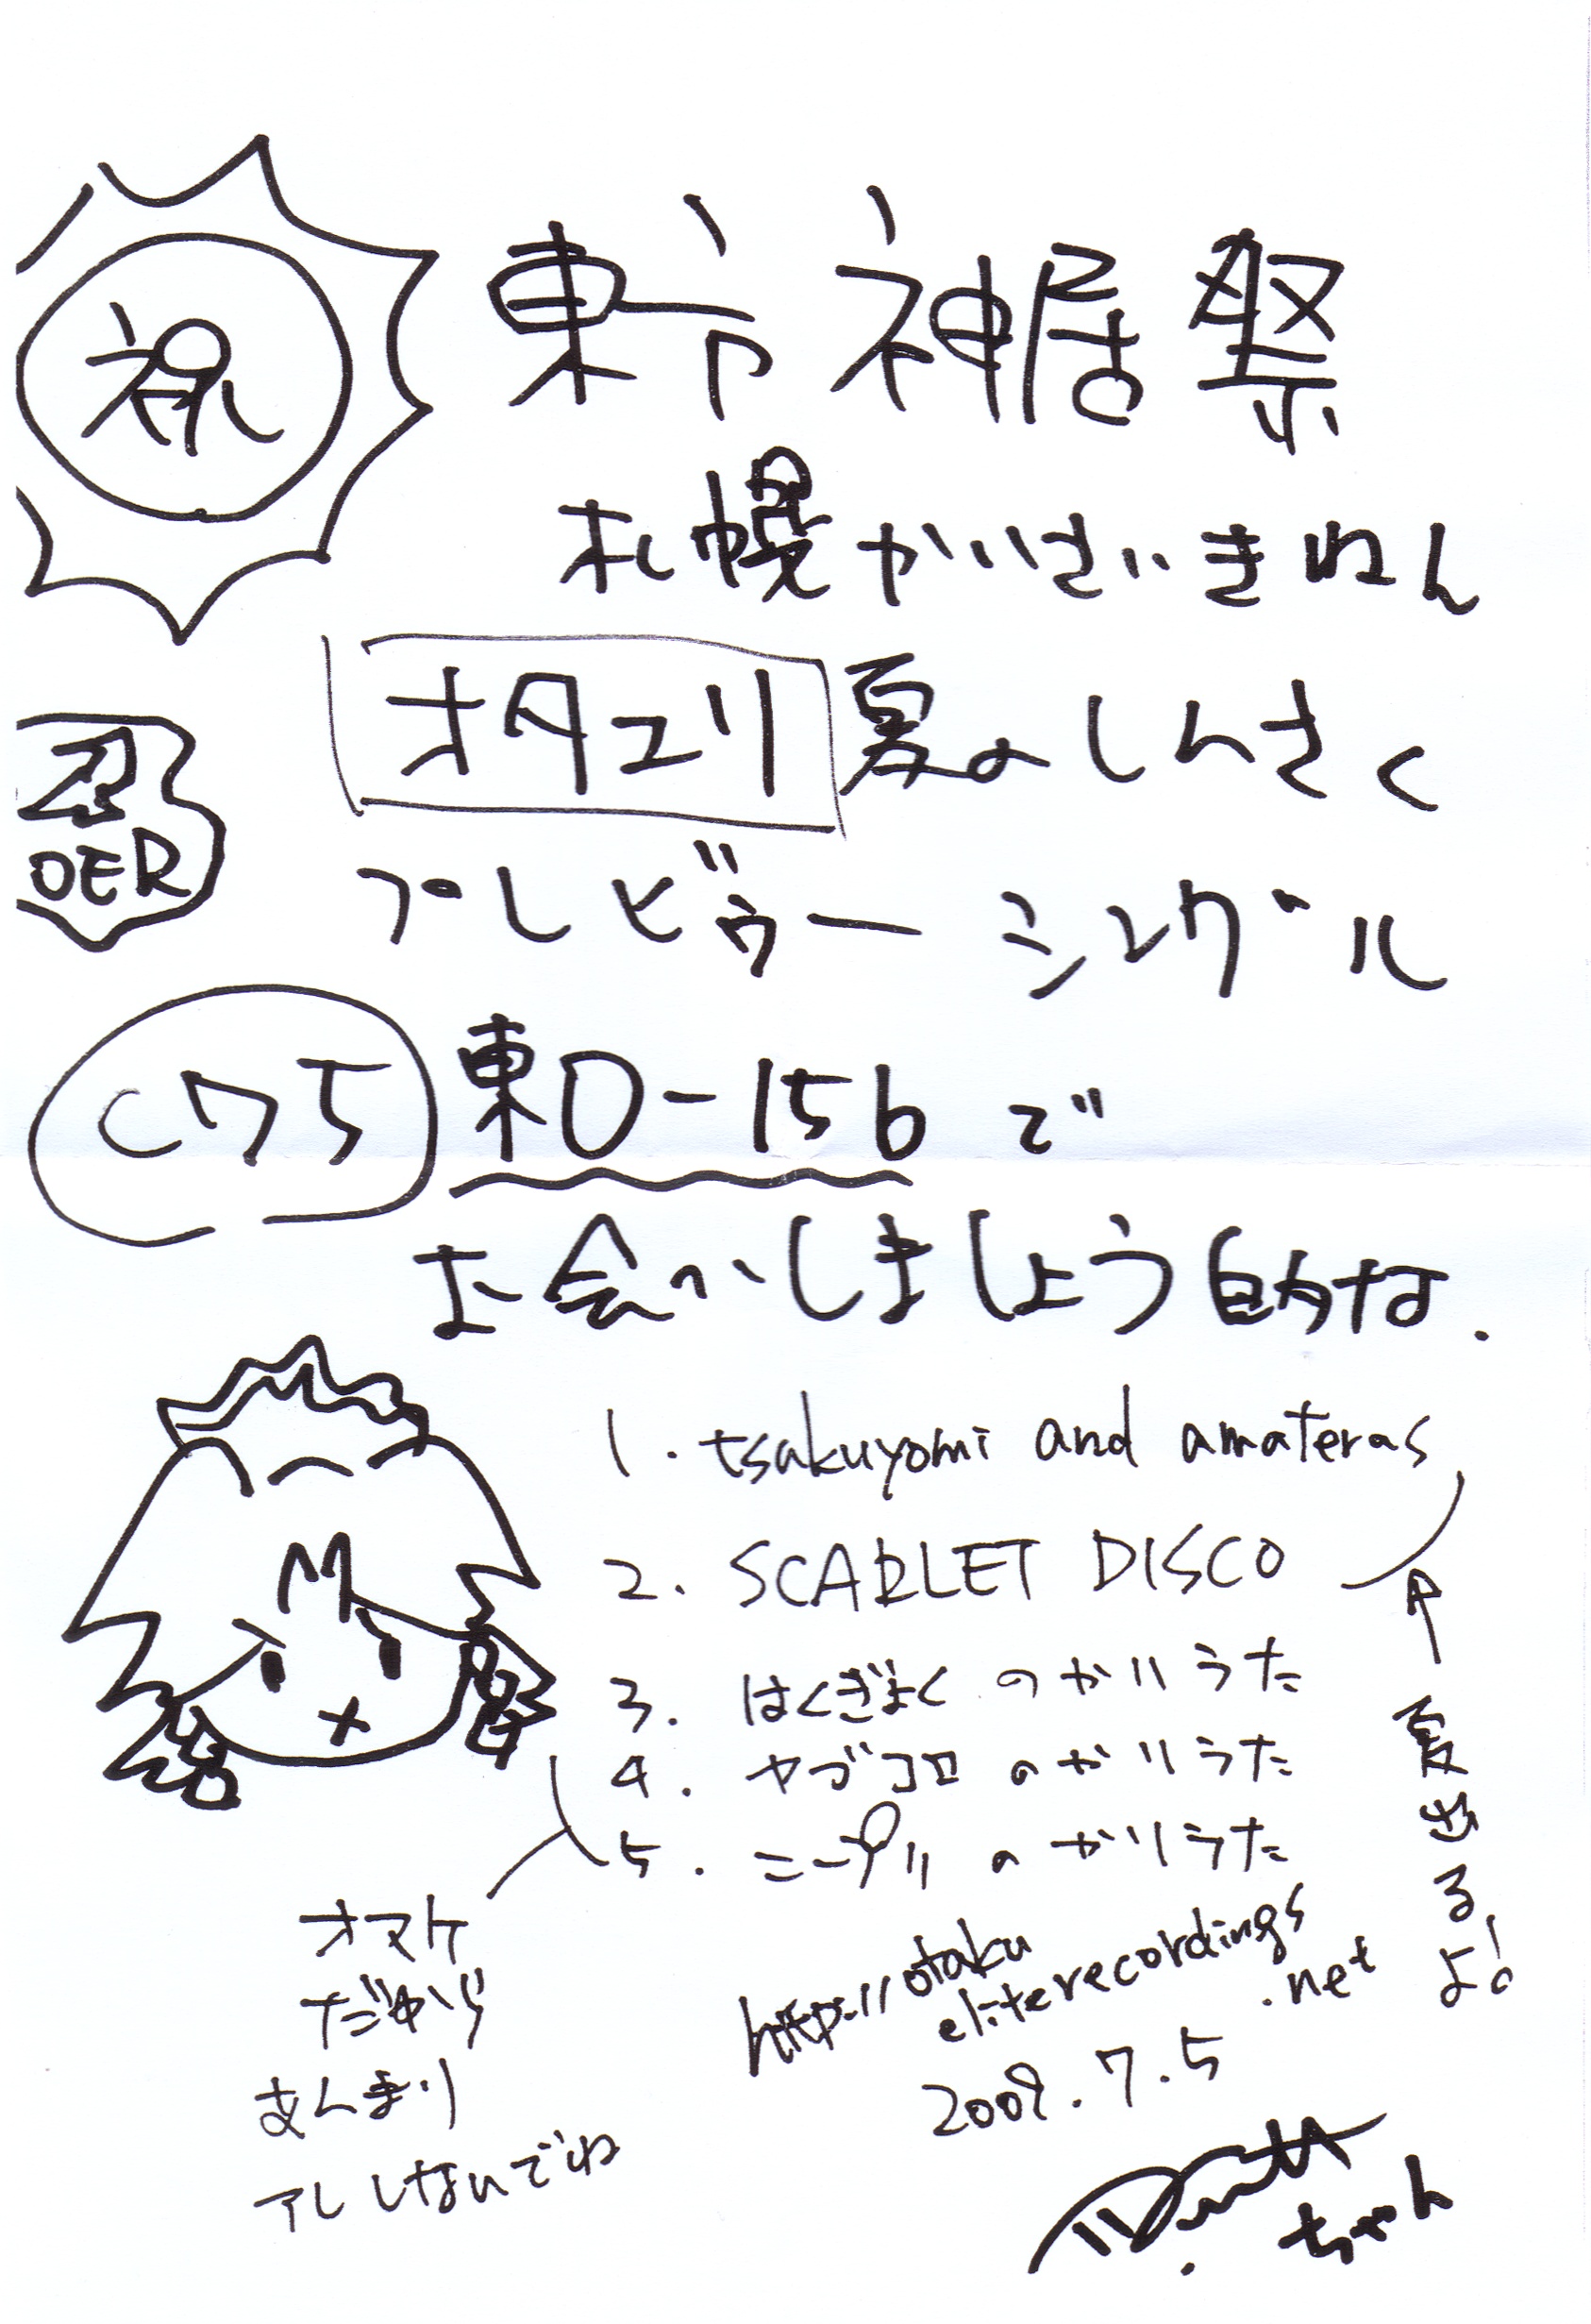 祝
東方神居祭
札幌かいさいきねん
オタエリ 夏のしんさく
忍
OER
プレビゥー シングル
C75 東O-15b で
お会いしましょう的な.
1. tsukuyomi and amateras
2. SCARLET DISCO
3. はくぎょくのかりうた
4. ヤゴコロのかりうた
5. ニーアリのかりうた
↑夏出るよ!
オマケ
だから
あんまり
アレしないでね
http://otaku
eliterecordings
.net
2009.7.5
ちゃん